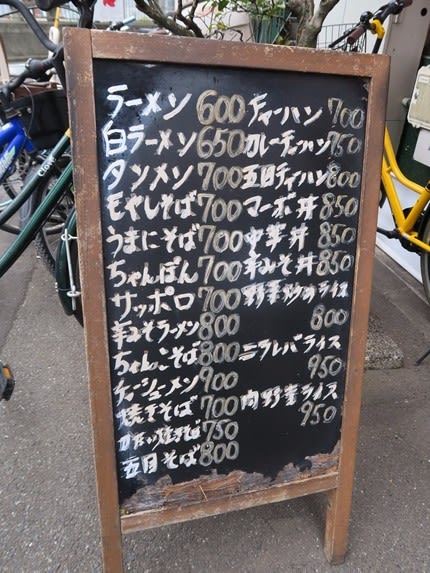 ラーメン 600
白ラーメン 650
タンメン 700
もやしそば 700
うまにそば 700
ちゃんぽん 700
サッポロ 700
辛みそラーメン 800
ちゃんこそば 800
チャーシューメン 900
焼きそば 700
かたい焼きそば 750
五目そば 800
チャーハン 700
カレーチャーハン 750
五目チャーハン 800
マーボ丼 850
中華丼 850
辛みそ丼 850
野菜炒めライス
800
ニラレバライス
950
肉野菜ライス
950